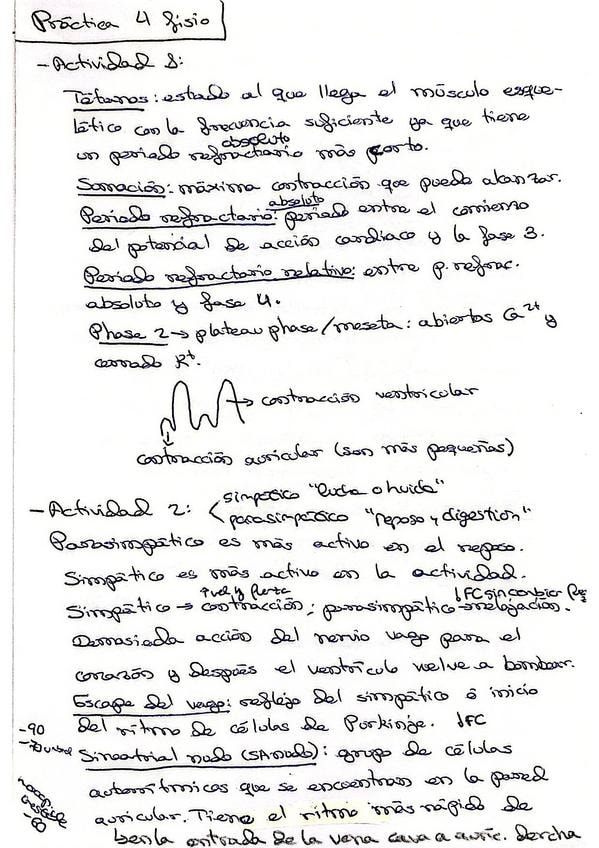 Práctica 4 fisio
- Actividad 1:
Tétanos: estado al que llega el músculo esque-
lético con la frecuencia suficiente ya que tiene
un periodo refractario absoluto más corto.
Sumación: máxima contracción que puede alcanzar.
Periodo refractario absoluto: periodo entre el comienzo
del potencial de acción cardiaco y la fase 3.
Periodo refractario relativo: entre p. refrac.
absoluto y fase 4.
Phase 2 → plateau phase/meseta: abiertos Ca²⁺ y
cerrado K⁺.
→ contracción ventricular
contracción auricular (son más pequeñas)
- Actividad 2: < simpático "lucha o huida"
parasimpático "reposo y digestión"
Parasimpático es más activo en el reposo.
Simpático es más activo en la actividad.
↑vel y fuerza ↓FC sin cambiar
Simpático → contracción; parasimpático → relajación.
Demasiada acción del nervio vago para el
corazón y después el ventrículo vuelve a bombear.
Escape del vago: reflejo del simpático o inicio
del ritmo de células de Purkinje. ↓FC
-90
Sinoatrial nodo (SA nodo): grupo de células
autorrítmicas que se encuentran en la pared
auricular. Tiene el ritmo más rápido de
-60
en la entrada de la vena cava a auríc. derecha